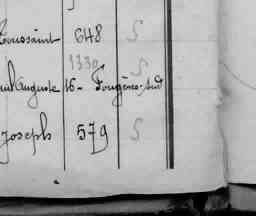 Toussaint 648 S
1330 S
Paul Auguste 16 - Fougères-Sud
Joseph 579 S